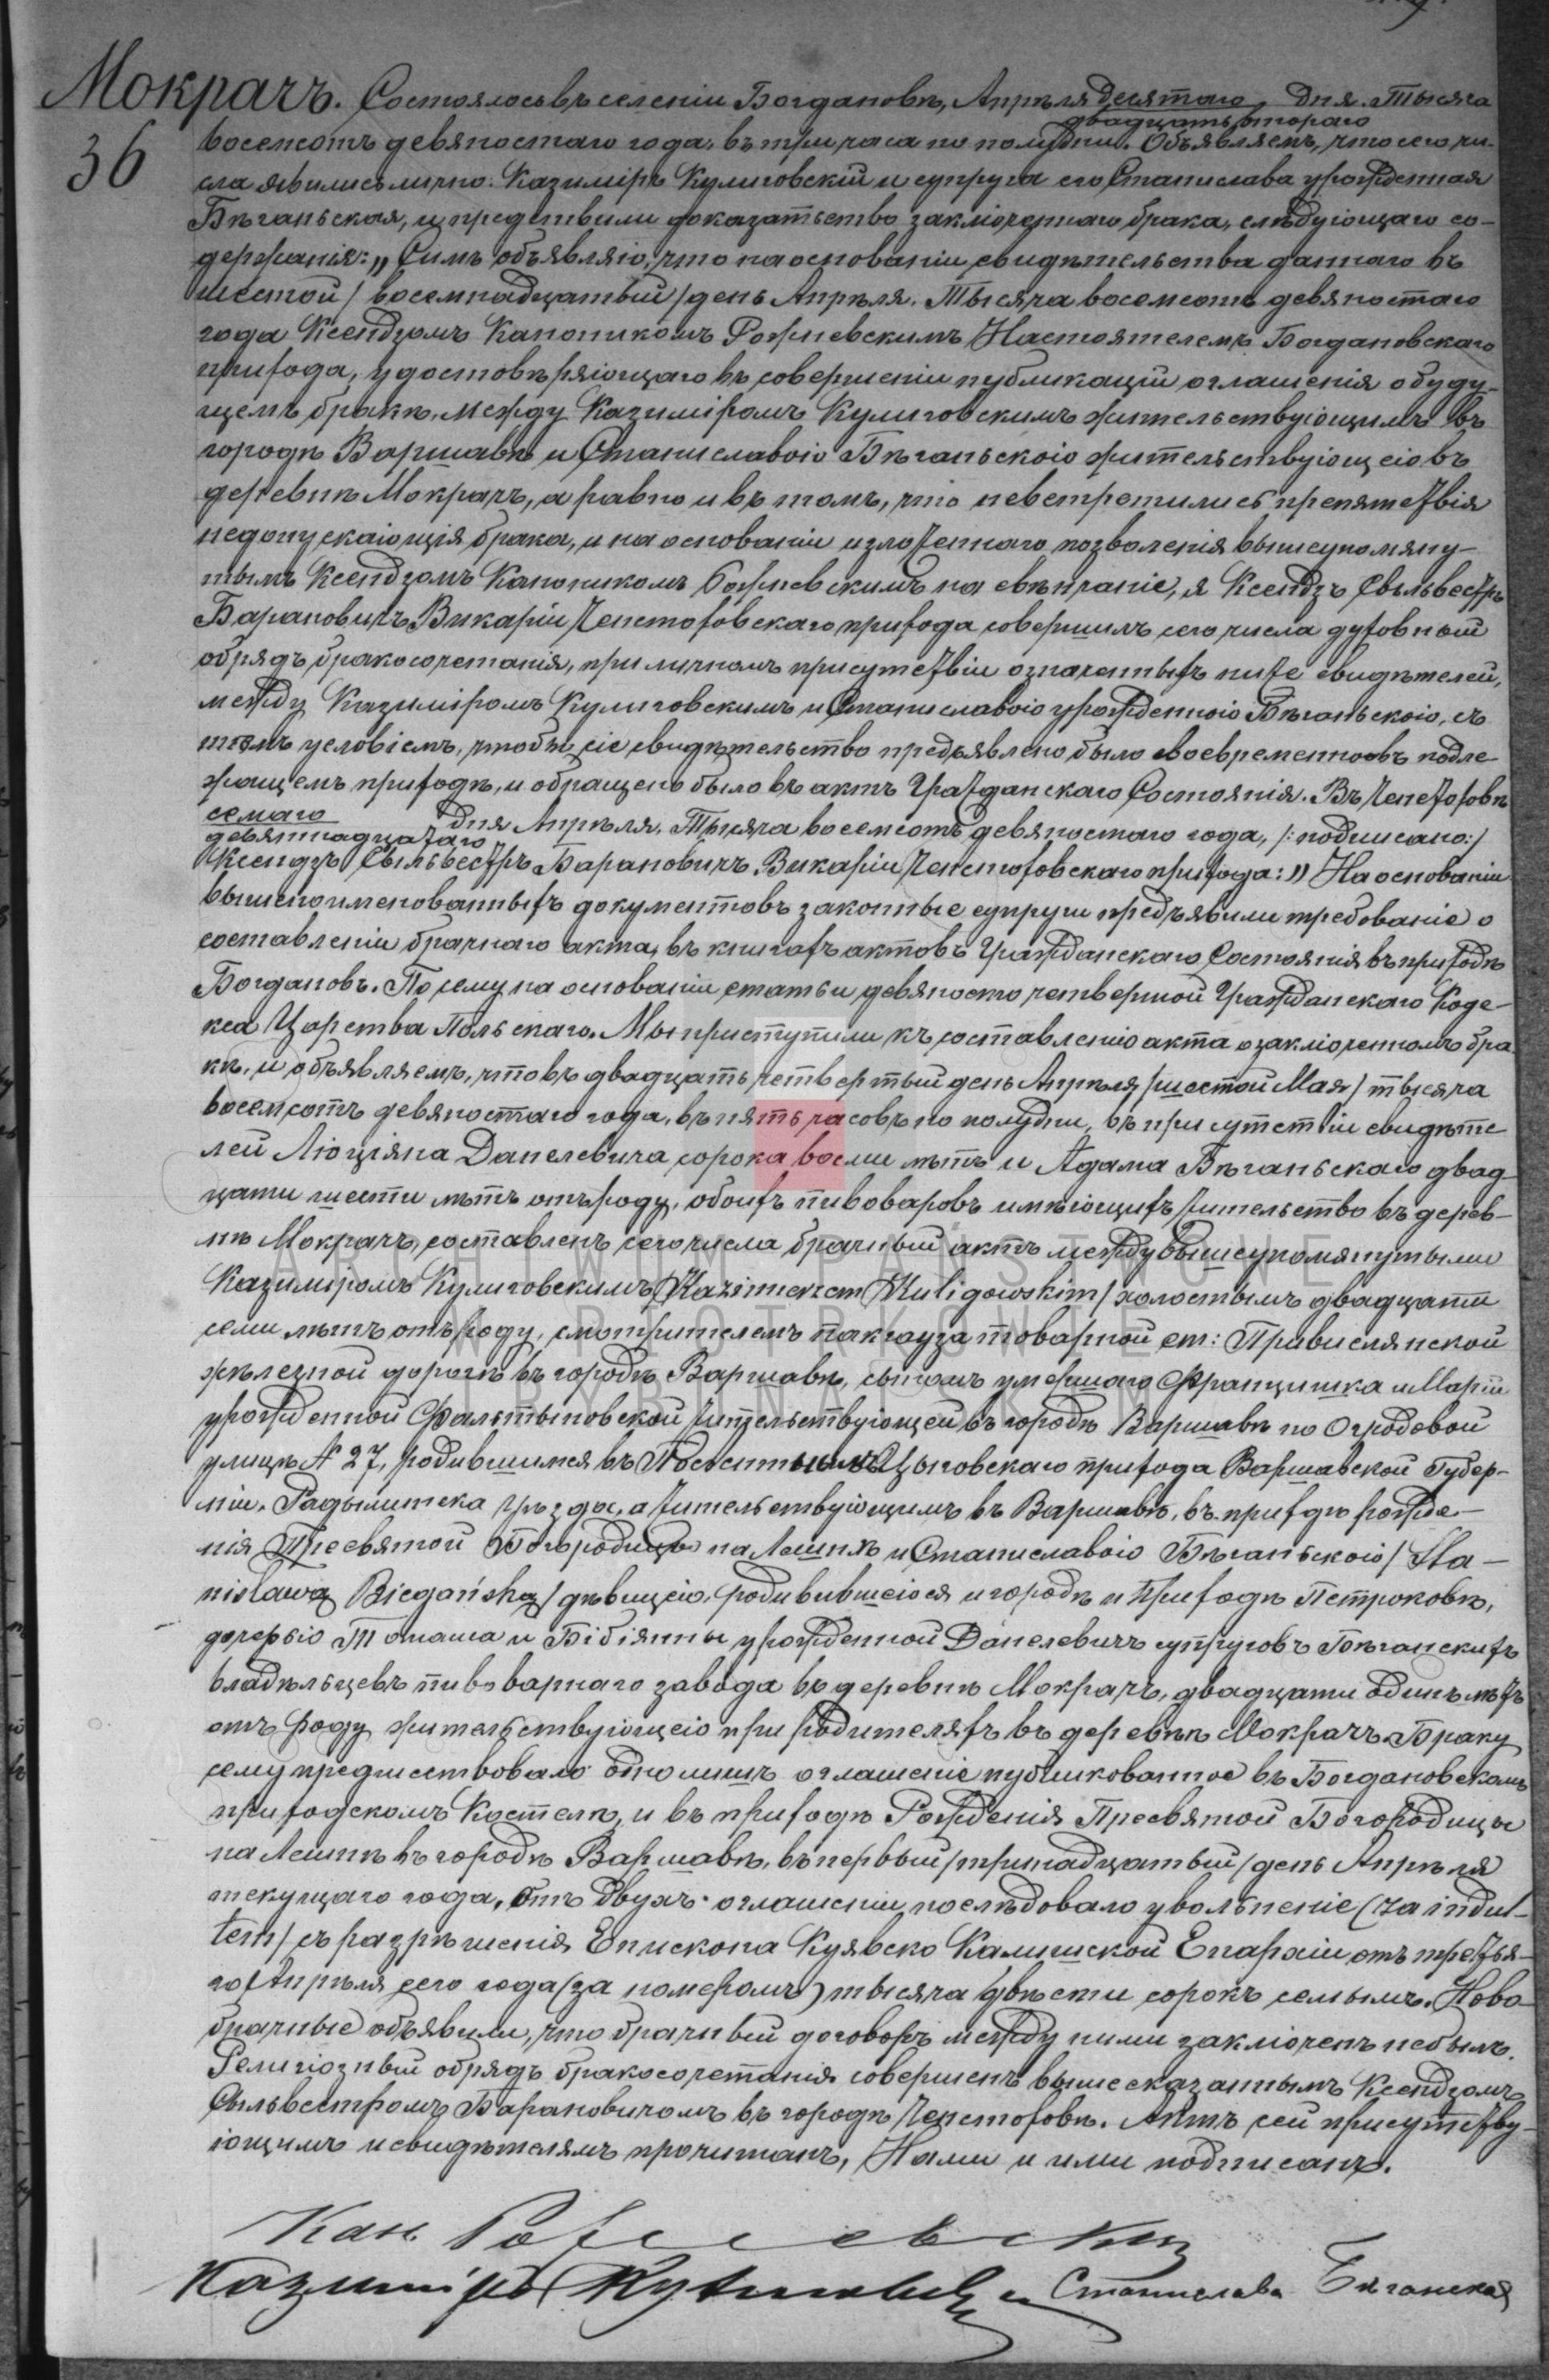 Мокрачъ.
36
Состоялось въ селеніи Богдановѣ, Апрѣля десятаго дня. Тысяча
двадцать втораго
восемсотъ девяностаго года, въ три часа по полудни. Объявляемъ, что сего чи-
сла явились лично: Казиміръ Кулиговскій и супруга его Станислава урожденная
Бѣганьская, и предствили доказатьество заключеннаго брака, слѣдующаго со-
держанія: „Симъ объявляю, что на основаніи свидѣтельства даннаго въ
шестой / восемнадцатый / день Апрѣля. Тысяча восемсотъ девяностаго
года Ксендзомъ Каноникомъ Рожневскимъ Настоятелемъ Богдановскаго
прихода, удостовѣряющаго въ совершеніи публикаціи оглашенія о буду-
щемъ бракѣ, между Казиміромъ Кулиговскимъ жительствующимъ въ
городѣ Варшавѣ и Станиславою Бѣганьскою жительствующею въ
деревнѣ Мокрачъ, а равно и въ томъ, что невстретились препятствія
недопускающія брака, и на основаніи изложеннаго позволенія вышеупомяну-
тымъ Ксендзомъ Каноникомъ на свѣнчаніе, я Ксендзъ Сыльвестръ
Барановичъ Викарій Ченстоховскаго прихода совершилъ сего числа духовный
обрядъ бракосочетанія, при личномъ присутствіи означенныхъ ниже свидѣтелей,
между Казиміромъ Кулиговскимъ и Станиславою урожденною Бѣганьскою, съ
тѣмъ условіемъ, чтобы сіе свидѣтельство предъявлено было своевременно въ подле-
жащемъ приходѣ, и обращено было въ актъ Гражданскаго Состоянія. Въ Ченстоховѣ
семаго
девятнадцатаго дня Апрѣля, Тысяча восемсотъ девяностаго года, /: подписано:/
Ксендзъ Сыльвестръ Барановичъ. Викарій Ченстоховскаго прихода: „ На основаніи
вышепоименованныхъ документовъ законные супруги предъявили требованіе о
составленіи брачнаго акта, въ книгахъ актовъ Гражданскаго Состоянія въ приходѣ
Богдановъ. По сему на основаніи статьи девяносто четвертой Гражданскаго Коде-
кса Царства Польскаго. Мы приступили къ составленію акта о заключенномъ бра-
кѣ, и объявляемъ, что въ двадцать четвертый день Апрѣля / шестой Мая / тысяча
восемсотъ девяностаго года, въ пять часовъ по полудни, въ присутствіи свидѣте
лей Люціяна Данелевича сорока восми лѣтъ и Адама Бѣганьскаго двад-
цати шести лѣтъ отъ роду, обоихъ пивоваровъ имѣющихъ жительство въ дерев-
нѣ Мокрачъ, составленъ сего числа брачный актъ между вышеупомянутыми
Казиміромъ Кулиговскимъ / Kazimierzem Kuligowskim / холостымъ двадцати
семи лѣтъ отъ роду, смотрителемъ пакгауза товарной ст: Привислянской
желѣзной дороги въ городѣ Варшавѣ, сыномъ умершаго Францишка и Маріи
урожденной Фальтыновской жительствующей въ городѣ Варшавѣ по Огродовой
улицѣ № 27, родившимся въ прихода Варшавской Губер-
ніи, уѣзда, а жительствующимъ въ Варшавѣ, въ приходѣ рожде-
нія Пресвятой Богородицы на Лешнѣ и Станиславою Бѣганьскою / Sta-
nisławą Biegańską / дѣвицею, родивившеюся и городѣ и приходѣ Петроковѣ,
дочерью Томаша и Бібіянны урожденной Данелевичъ супруговъ Бѣганскихъ
владѣльцевъ пивоварнаго завода въ деревнѣ Мокрачъ, двадцати одинъ лѣтъ
отъ роду жительствующею при родителяхъ въ деревнѣ Мокрачъ. Браку
сему предшествовало одно лишь оглашеніе публикованное въ Богдановскомъ
приходскомъ Костелѣ, и въ приходѣ Рожденія Пресвятой Богородицы
на Лешнѣ въ городѣ Варшавѣ, въ первый / тринадцатый / день Апрѣля
текущаго года, отъ двухъ оглашеніи послѣдовало увольненіе (za indul-
tem / съ разрѣшенія Епископа Куявско Калишской Епархіи отъ третья-
го Апрѣля сего года (за номеромъ) тысяча двѣсти сорокъ семымъ. Ново-
брачные объявили, что брачный договоръ между ними заключенъ небылъ.
Религіозный обрядъ бракосочетанія совершенъ вышесказаннымъ Ксендзомъ
Сыльвестромъ Барановичомъ въ городѣ Ченстоховѣ. Актъ сей присутству-
ющимъ и свидѣтелямъ прочитанъ, Нами и ими подписанъ.
Кан. Рожневский
Казиміръ Кулиговскій Станислава Бѣганская
ARCHIWUM PAŃSTWOWE
W PIOTRKOWIE
TRYBUNALSKIM